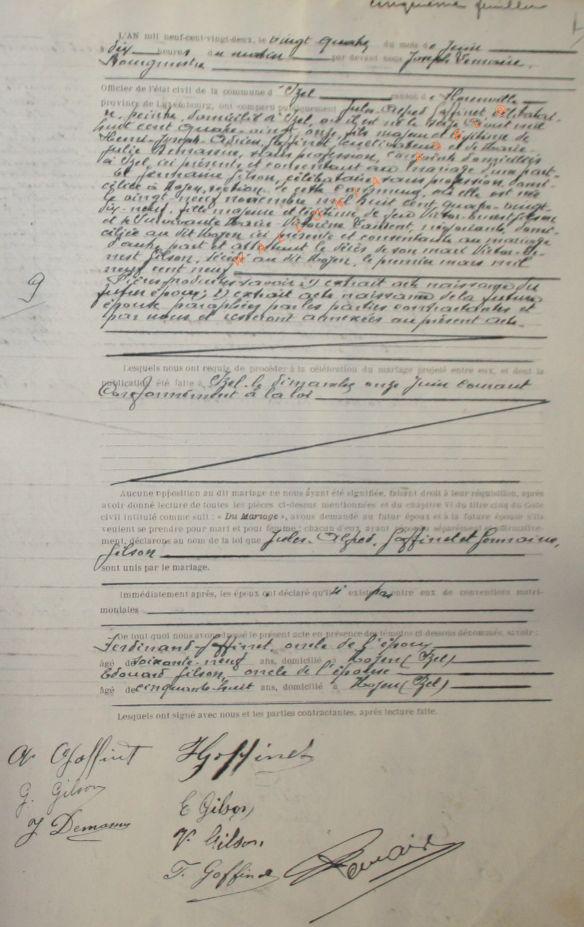 cinquième feuillet
L'AN mil neuf-cent-vingt-deux, le vingt quatre du mois de Juin
à dix heures du matin par devant nous Joseph Lemaire,
Bourgmestre
Officier de l'état civil de la commune d'Izel canton de Florenville
province de Luxembourg, ont comparu publiquement Jules-Alfred, Goffinet, célibatai-
re, peintre, domicilié à Izel, où il est né le
huit cent quatre-vingt-onze, fils majeur et légitime de
Henri-Joseph Goffinet, cultivateur et de Marie-
Julie Demanne, sans profession, conjoints domiciliés
à Izel, ici présents et consentant au mariage d'une part.
et Germaine Gilson, célibataire, sans profession, domi-
ciliée à Moyen, section de cette commune, où elle est née
le vingt neuf novembre mil huit cent quatre-vingt-
dix-neuf, fille majeure et légitime de feu Victor-Ernest Gilson
et de survivante Marie-Victorine Laurent, négociante, domi-
ciliée au dit Moyen, ici présente et consentante au mariage
d'autre part et attestant le décès de son mari Victor-Er-
nest Gilson, décédé au dit Moyen, le premier mars mil
neuf cent neuf
Pièces produites savoir: 1) extrait acte naissance du
futur époux; 2) extrait acte naissance de la future
épouse paraphés par les parties contractantes et
par nous et resteront annexées au présent acte.
9
Lesquels nous ont requis de procéder à la célébration du mariage projeté entre eux, et dont la
publication a été faite à Izel, le dimanche onze Juin courant
Conformément à la loi
Aucune opposition au dit mariage ne nous ayant été signifiée, faisant droit à leur réquisition, après
avoir donné lecture de toutes les pièces ci-dessus mentionnées et du chapitre VI du titre cinq du Code
civil intitulé comme suit : « Du Mariage », avons demandé au futur époux et à la future épouse s'ils
veulent se prendre pour mari et pour femme ; chacun d'eux ayant répondu séparément et affirmative-
ment, déclarons au nom de la loi que Jules-Alfred, Goffinet et Germaine,
Gilson
sont unis par le mariage.
Immédiatement après, les époux ont déclaré qu'il n'existe pas entre eux de conventions matri-
moniales
De tout quoi nous avons dressé le présent acte en présence des témoins ci-dessous dénommés, savoir :
Ferdinand Goffinet, oncle de l'époux
âgé de soixante-neuf ans, domicilié à Moyen (Izel)
Edouard Gilson, oncle de l'épouse
âgé de cinquante-huit ans, domicilié à Moyen (Izel)
Lesquels ont signé avec nous et les parties contractantes, après lecture faite.
A. Goffinet
H Goffinet
G. Gilson
E Gilson
J Demanne
V. Gilson
F. Goffinet
Lemaire